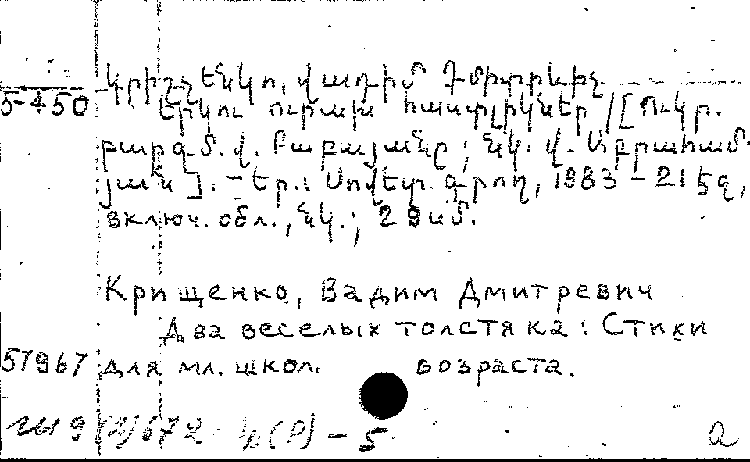 Կրիշչենկո, Վադիմ Դմիտրևիչ
5-450 Երկու ուրախ հաստլիկներ / [Ուկր.
բարգմ. Վ. Բաբայանը; Նկ. Վ. Աբրահամ-
յան]. - Եր.: Սովետ. գրող, 1983 - 21 էջ,
включ. обл., նկ.; 29 սմ.
Крищенко, Вадим Дмитревич
Два веселых толстяка: Стихи
57967 для мл. школ. возраста.
а